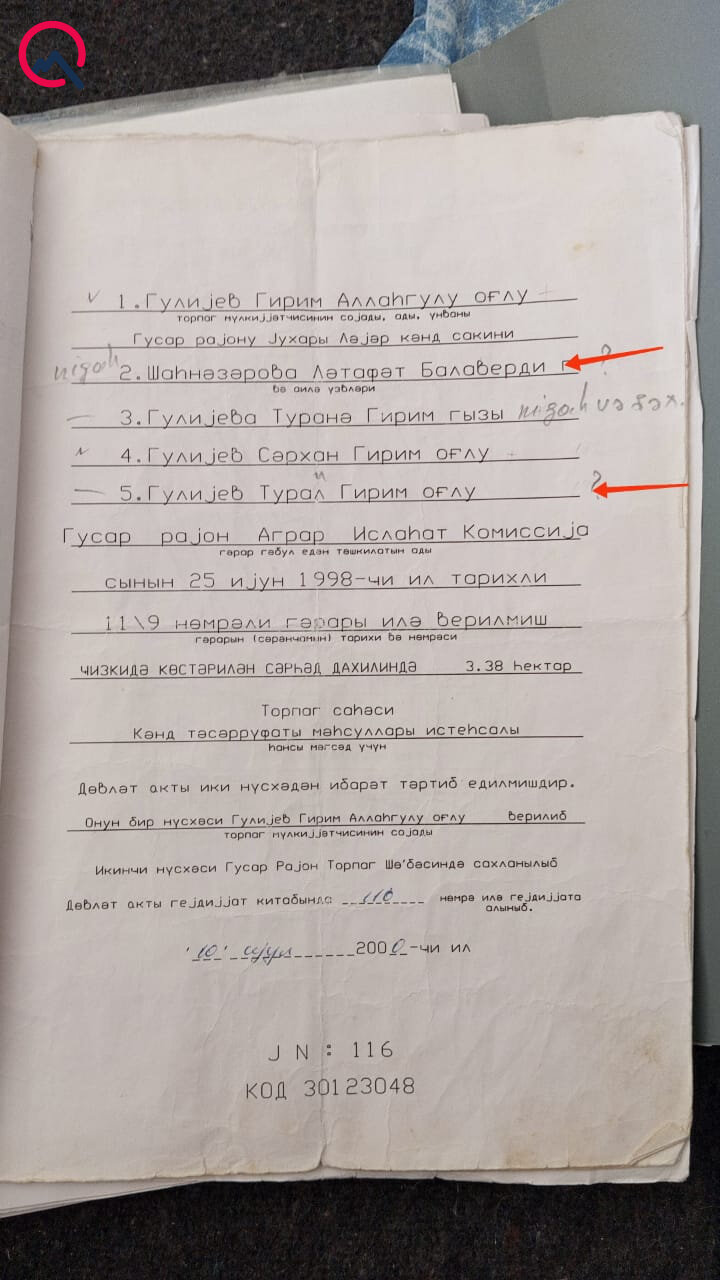 ✓ 1.Гулијев Гирим Аллаһгулу оғлу +
торпаг мүлкијјәтчисинин сојады, ады, үнваны
Гусар рајону Јухары Ләјәр кәнд сакини
nigah 2.Шаһнәзәрова Ләтафәт Балаверди г ?
вә аилә үзвләри
— 3.Гулијева Туранә Гирим гызы nigah və şəx.
4.Гулијев Сәрхан Гирим оғлу +
— 5.Гулијев Турал Гирим оғлу ?
Гусар рајон Аграр Ислаһат Комиссија
гәрар гәбул едән тәшкилатын ады
сынын 25 ијун 1998-чи ил тарихли
11\9 нөмрәли гәрары илә верилмиш
гәрарын (сәрәнчамын) тарихи вә нөмрәси
чизкидә көстәрилән сәрһәд дахилиндә 3.38 һектар
Торпаг саһәси
Кәнд тәсәррүфаты мәһсуллары истеһсалы
һансы мәгсәд үчүн
Дөвләт акты ики нүсхәдән ибарәт тәртиб едилмишдир.
Онун бир нүсхәси Гулијев Гирим Аллаһгулу оғлу верилиб
торпаг мүлкијјәтчисинин сојады
Икинчи нүсхәси Гусар Рајон Торпаг Шө'бәсиндә сахланылыб
Дөвләт акты гејдијјат китабында 116 нөмрә илә гејдијјата
алыныб.
'10' ијул 2000-чи ил
J N : 116
КОД 30123048